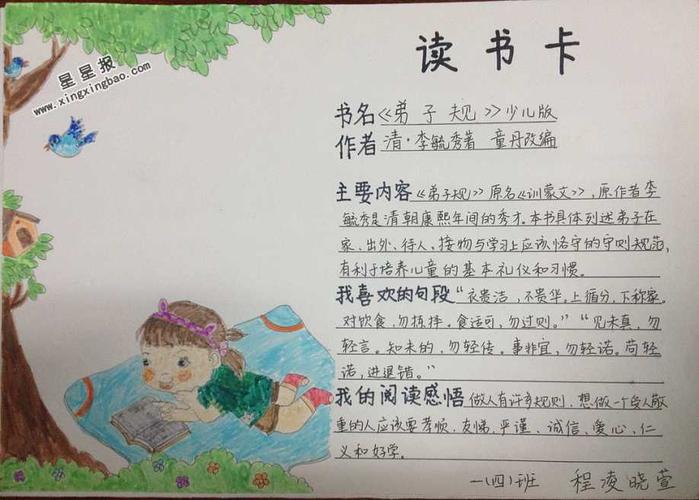 星星报
www.xingxingbao.com
读书卡
书名《弟子规》少儿版
作者 清·李毓秀著 童丹改编
主要内容《弟子规》原名《训蒙文》,原作者李
毓秀是清朝康熙年间的秀才。本书具体列述弟子在
家、出外、待人、接物与学习上应该恪守的守则规范,
有利于培养儿童的基本礼仪和习惯。
我喜欢的句段“衣贵洁,不贵华,上循分,下称家。
对饮食,勿拣择,食适可,勿过则。”“见未真,勿
轻言。知未的,勿轻传。事非宜,勿轻诺。苟轻
诺,进退错。”
我的阅读感悟 做人有许多规则,想做一个受人敬
重的人应该要孝顺,友悌,严谨、诚信、爱心、仁
义和好学。
一(四)班 程凌晓萱